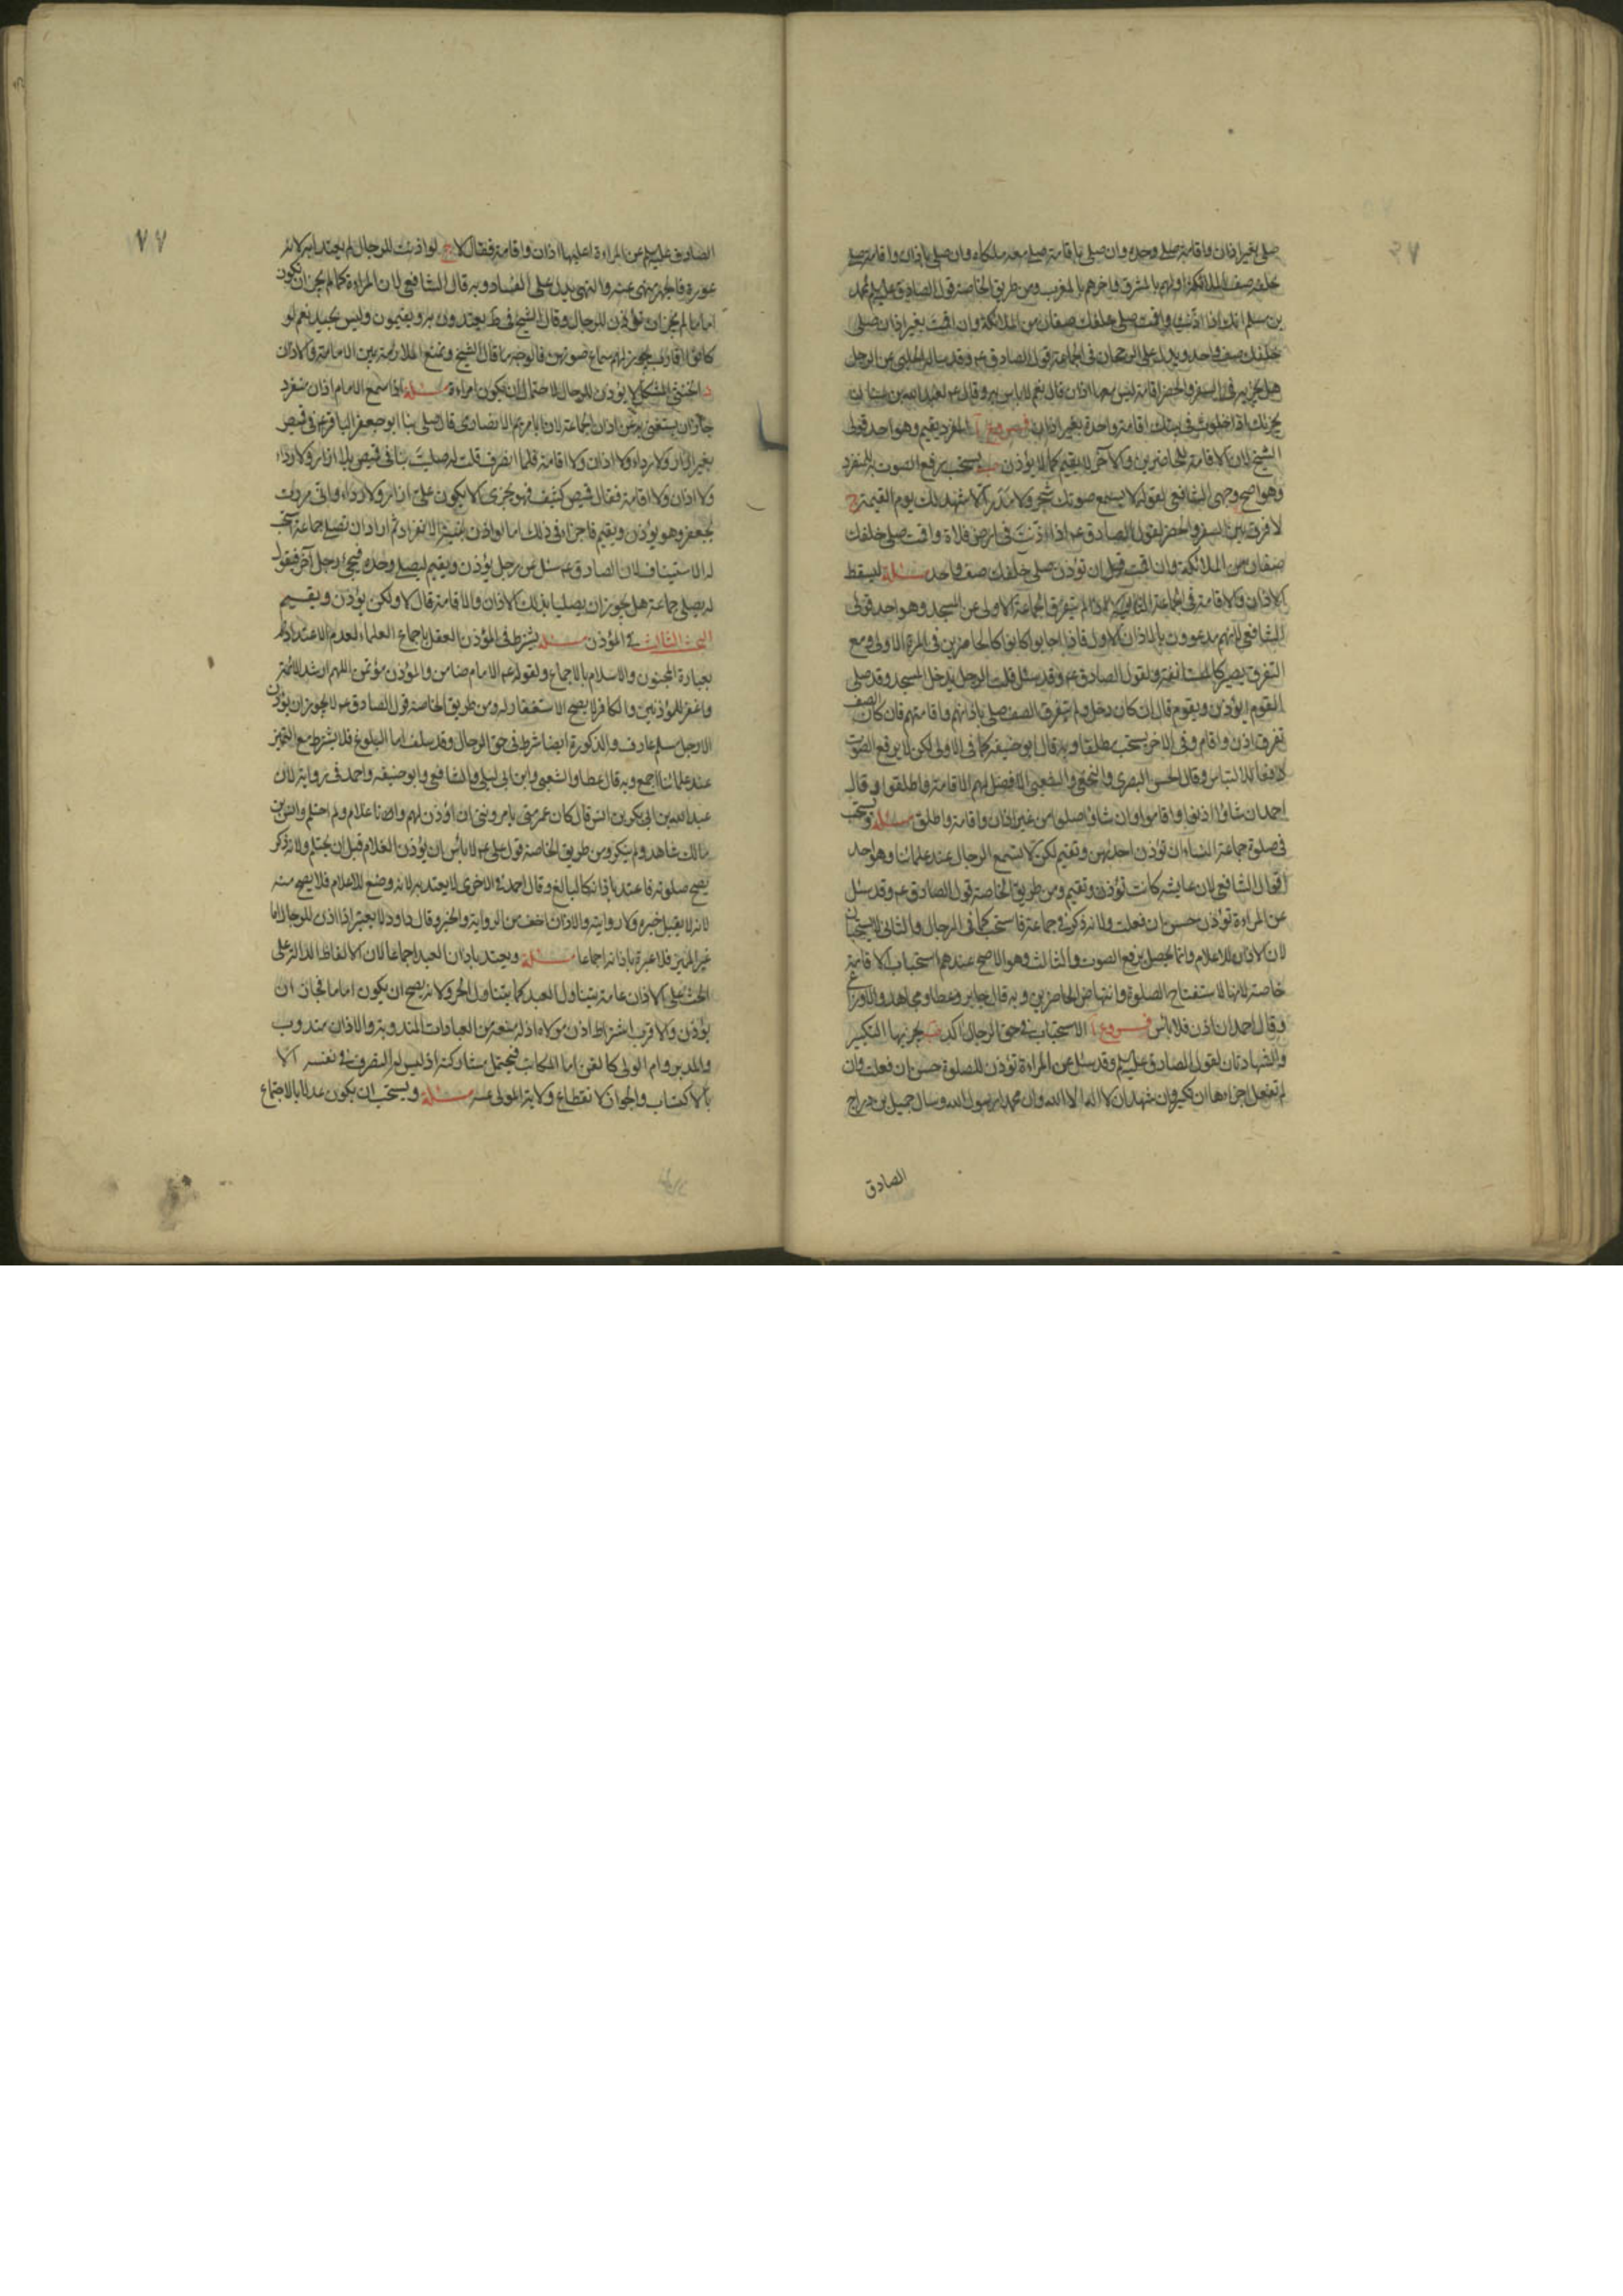 صلى بغير اذان واقامة صلى وحده وان صلى باقامة صلى معه ملكاه وان صلى باذان واقامة صلى
خلفه صف من الملائكة اولهم بالمشرق واخرهم بالمغرب ومن طريق الخاصة قول الصادق عليه لمحمد
بن مسلم انك اذا اذنت واقمت صلى خلفك صفان من الملائكة وان اقمت بغير اذان صلى
خلفك صف واحد ويدل على الرجحان في الجماعة قول الصادق عم وقد ساله الحلبي عن الرجل
هل يجزيه في السفر والحضر اقامة ليس معها اذان قال نعم لا باس به وقال عم لعبدالله بن سنان
يجزيك اذا خلوت في بيتك اقامة واحدة بغير اذان فروع آ المنفرد يقيم وهو احد قولي
الشيخ لان الاقامة للحاضرين والآخر لا يقيم كما لا يؤذن ب يستحب رفع الصوت به للمنفرد
وهو اصح وجهي الشافعي لقوله لا يسمع صوتك شجر ولا مدر الا شهد لك يوم القيمة ج
لا فرق بين السفر والحضر لقول الصادق عم اذا اذنت في ارض فلاة واقمت صلى خلفك
صفان من الملائكة وان اقمت قبل ان تؤذن صلى خلفك صف واحد مسئلة يسقط
الاذان والاقامة في الجماعة الثانية اذا لم يتفرق الجماعة الاولى عن المسجد وهو احد قولي
الشافعي لانهم مدعوون بالاذان الاول فاذا اجابوا كانوا كالحاضرين في المرة الاولى ومع
التفرق يصير كالمستانفة ولقول الصادق عم وقد سئل قلت الرجل يدخل المسجد وقد صلى
القوم ايؤذن ويقوم قال ان كان دخل ولم يتفرق الصف صلى باذانهم واقامتهم فان كان الصف
تفرق اذن واقام وفي الاخر يستحب مطلقا وبه قال ابو حنيفه كما في الاولى لكن لا يرفع الصوت
دفعا للالتباس وقال الحسن البصري والنخعي والشعبي الافضل لهم الاقامة فاطلقوا وقال
احمد ان شاؤا اذنوا واقاموا وان شاؤا صلوا من غير اذان واقامة واطلق مسئلة ويستحب
في صلوة جماعة النساء ان تؤذن احديهن وتقيم لكن لا يسمع الرجال عند علمائنا وهو احد
اقوال الشافعي لان عايشه كانت تؤذن وتقيم ومن طريق الخاصة قول الصادق عم وقد سئل
عن المراءة تؤذن حسن ان فعلت ولانه ذكر في جماعة فاستحب كما في الرجال والثاني لا يستحبان
لان الاذان للاعلام وانما يحصل برفع الصوت والثالث وهو الاصح عندهم استحباب الاقامة
خاصة لانها لاستفتاح الصلوة وانتهاض الحاضرين وبه قال جابر وعطا ومجاهد والاوزاعي
وقال احمد ان اذن فلا باس فروع آ الاستحباب في حق الرجال آكد ب يجزيها التكبير
والشهادتان لقول الصادق عليه السلام وقد سئل عن المراءة تؤذن للصلوة حسن ان فعلت وان
لم تفعل اجزاءها ان تكبر وان تشهد ان لا اله الا الله وان محمدا رسول الله وسال جميل بن دراج
الصادق
٧٧
الصادق عليه السلام عن المراءة اعليها اذان واقامة فقال لا ج لو اذنت للرجال لم يعتد به لانه
عورة فالجهر منهى عنه والنهي يدل على الفساد وبه قال الشافعي لان المراءة كما لم يجز ان تكون
اماما لم يجز ان تؤذن للرجال وقال الشيخ في ط يعتدون به ويقيمون وليس بجيد نعم لو
كانوا اقارب يجوز لهم سماع صوتهن فالوجه ما قال الشيخ ونمنع الملازمة بين الامامة والاذان
د الخنثى المشكل لا يؤذن للرجال لاحتمال ان يكون امراءة مسئلة اذا سمع الامام اذان منفرد
جاز ان يستغني به عن اذان الجماعة لان ابا مريم الانصاري قال صلى بنا ابو جعفر الباقر عم في قميص
بغير ازار ولا رداء ولا اذان ولا اقامة فلما انصرف قلت له صليت بنا في قميص بلا ازار ولا رداء
ولا اذان ولا اقامة فقال قميصي كثيف فهو يجزي الا يكون علي ازار ولا رداء واني مررت
بجعفر وهو يؤذن ويقيم فاجزاء في ذلك اما لو اذن بنية الانفراد ثم اراد ان تصلي جماعة استحب
له الاستيناف لان الصادق عم سئل عن رجل يؤذن ويقيم ليصلي وحده فيجئ رجل آخر فيقول
له يصلي جماعة هل يجوز ان يصليا بذلك الاذان والاقامة قال لا ولكن يؤذن ويقيم
البحث الثالث في المؤذن مسئلة يشترط في المؤذن العقل باجماع العلماء لعدم الاعتداد
بعبارة المجنون والاسلام بالاجماع ولقوله عم الامام ضامن والمؤذن مؤتمن اللهم ارشد الائمة
واغفر للمؤذنين والكافر لا يصح الاستغفار له ومن طريق الخاصة قول الصادق عم لا يجوز ان يؤذن
الا رجل مسلم عارف والذكورة ايضا شرط في حق الرجال وقد سلف اما البلوغ فلا يشترط مع التميز
عند علمائنا اجمع وبه قال عطا والشعبي وابن ابي ليلى والشافعي وابو حنيفه واحمد في رواية لان
عبد الله بن ابي بكر بن انس قال كان عمومتي يامرونني ان اؤذن لهم وانا غلام ولم احتلم وانس بن
مالك شاهد ولم ينكر ومن طريق الخاصة قول علي عم لا باس ان يؤذن الغلام قبل ان يحتلم ولانه ذكر
يصح صلوته فاعتد باذانه كالبالغ وقال احمد في الاخرى لا يعتد به لانه وضع للاعلام فلا يصح منه
لانه لا يقبل خبره ولا روايته والاذان اخف من الرواية والخبر وقال داود لا يعتبر اذا اذن للرجال اما
غير المميز فلا عبرة باذانه اجماعا مسئلة ويعتد باذان العبد اجماعا لان الالفاظ الدالة على
الحث على الاذان عامة يتناول العبد كما يتناول الحر ولانه يصح ان يكون اماما فجاز ان
يؤذن والاقرب اشتراط اذن مولاه اذ له منعه من العبادات المندوبة والاذان مندوب
والمدبر وام الولد كالقن اما المكاتب فيحتمل مشاركته اذ ليس له التصرف في نفسه الا
بالاكتساب والجواز لانقطاع ولاية المولى عنه مسئلة ويستحب ان يكون عدلا بالاجماع